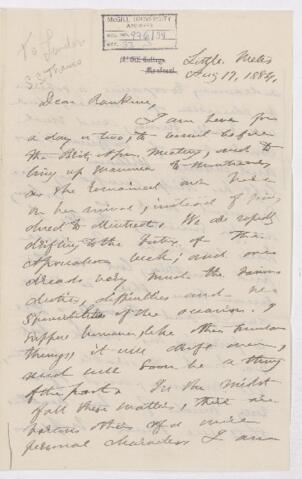 McGILL UNIVERSITY
ARCHIVES
ACC. NO. 927/34
REF. 33
To London
S.S. Thames
McGill College
Montreal
Little Metis
Aug 17, 1884,
Dear Rankine,
I am here for
a day or two, to
before
the Brit. Assn. Meeting, and to
bring up Mamma to Montreal
as she remained out here
on her arrival, instead of going
direct to Montreal. We are rapidly
drifting to the
of the
Association week; and one
dreads very much the various
duties, difficulties and re
sponsibilities of the occasion. I
suppose however, like other human
things, it will drift over,
and will soon be a thing
of the past. In the midst
of all these matters, there are
various others of a more
personal character. I am